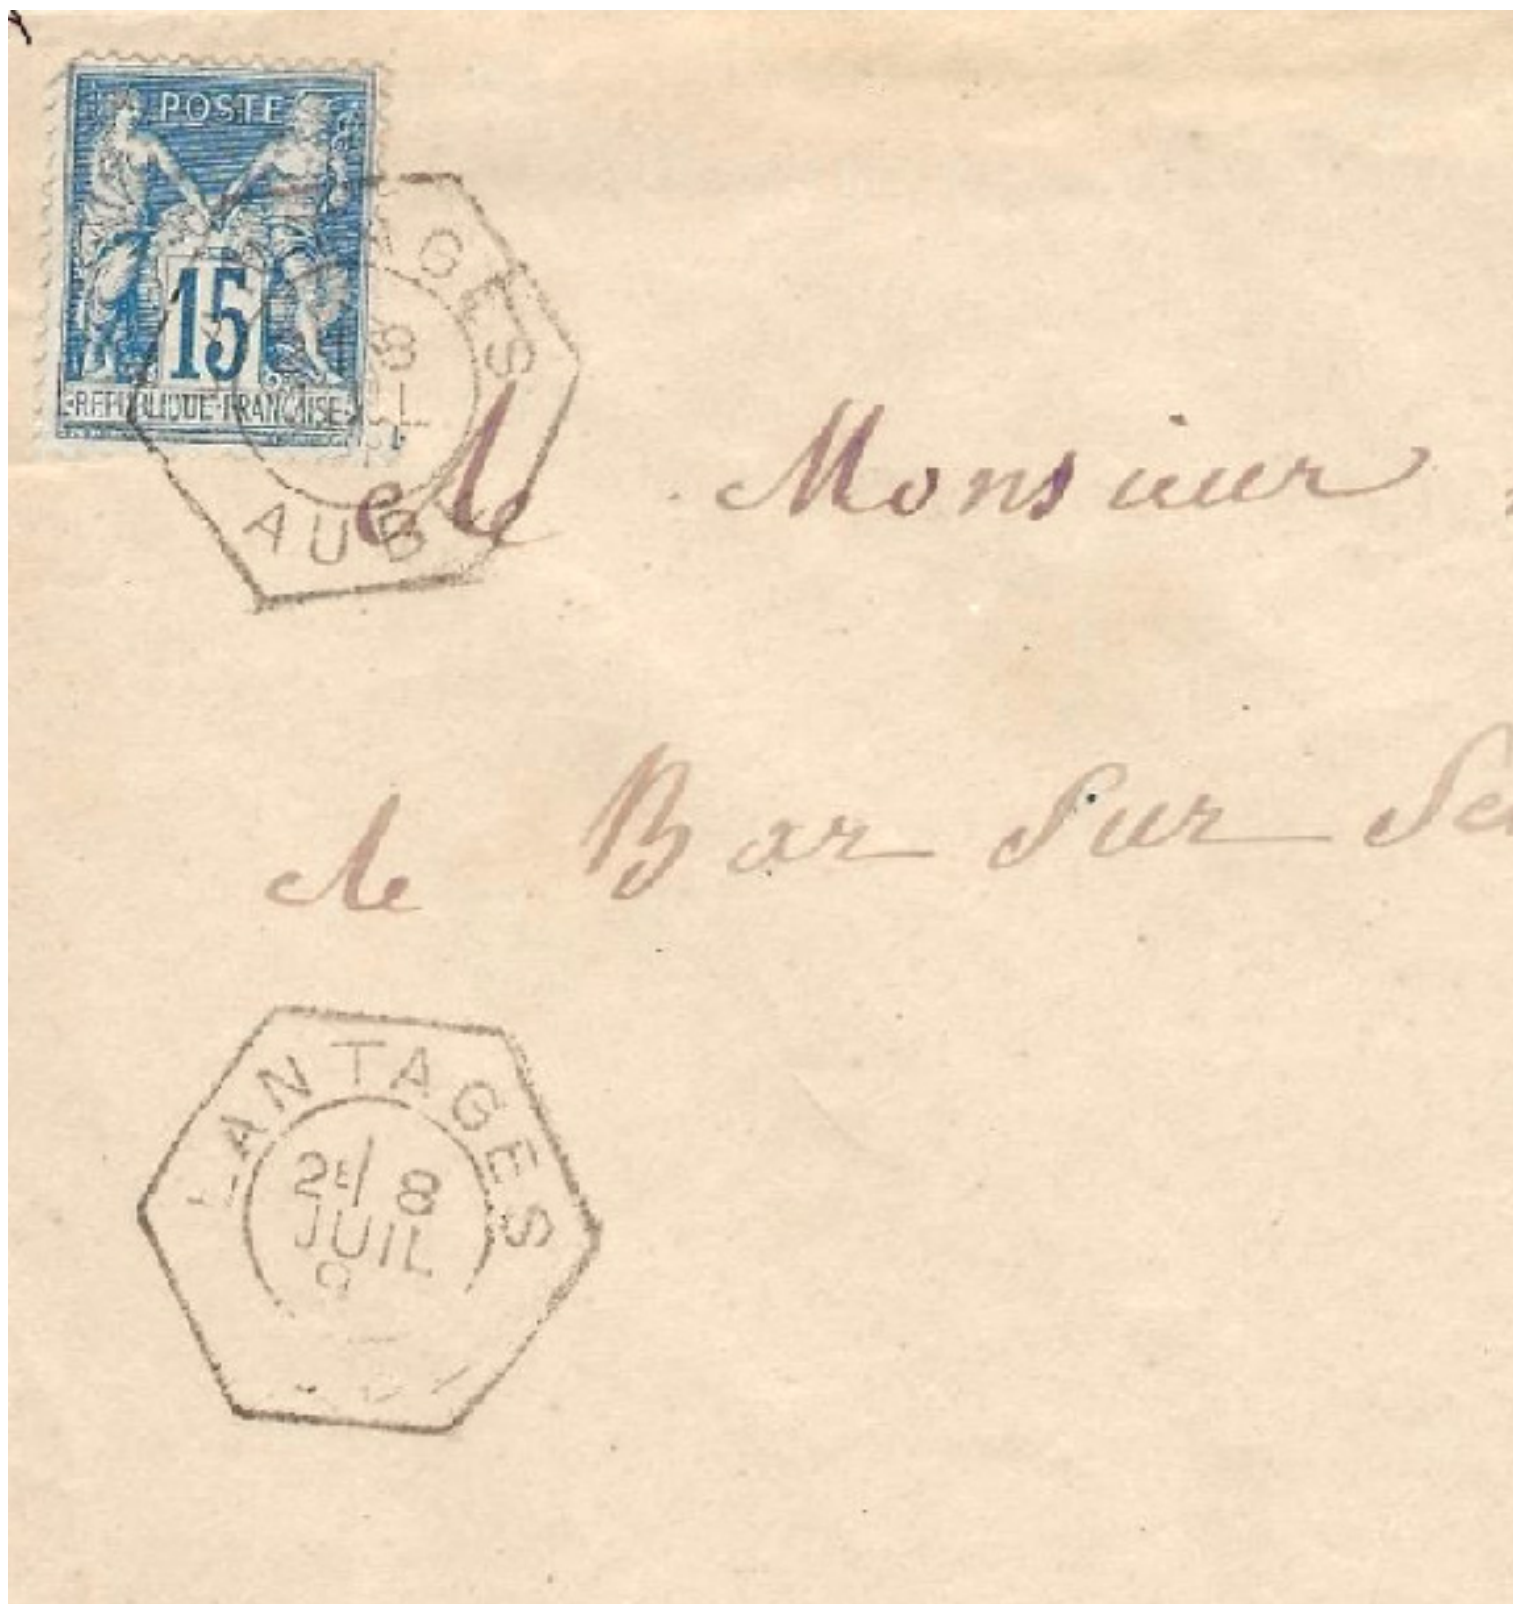 POSTE
15
REPUBLIQUE FRANÇAISE
AUB
A Monsieur
de Bar Sur
LANTAGES
2E/ 8
JUIL